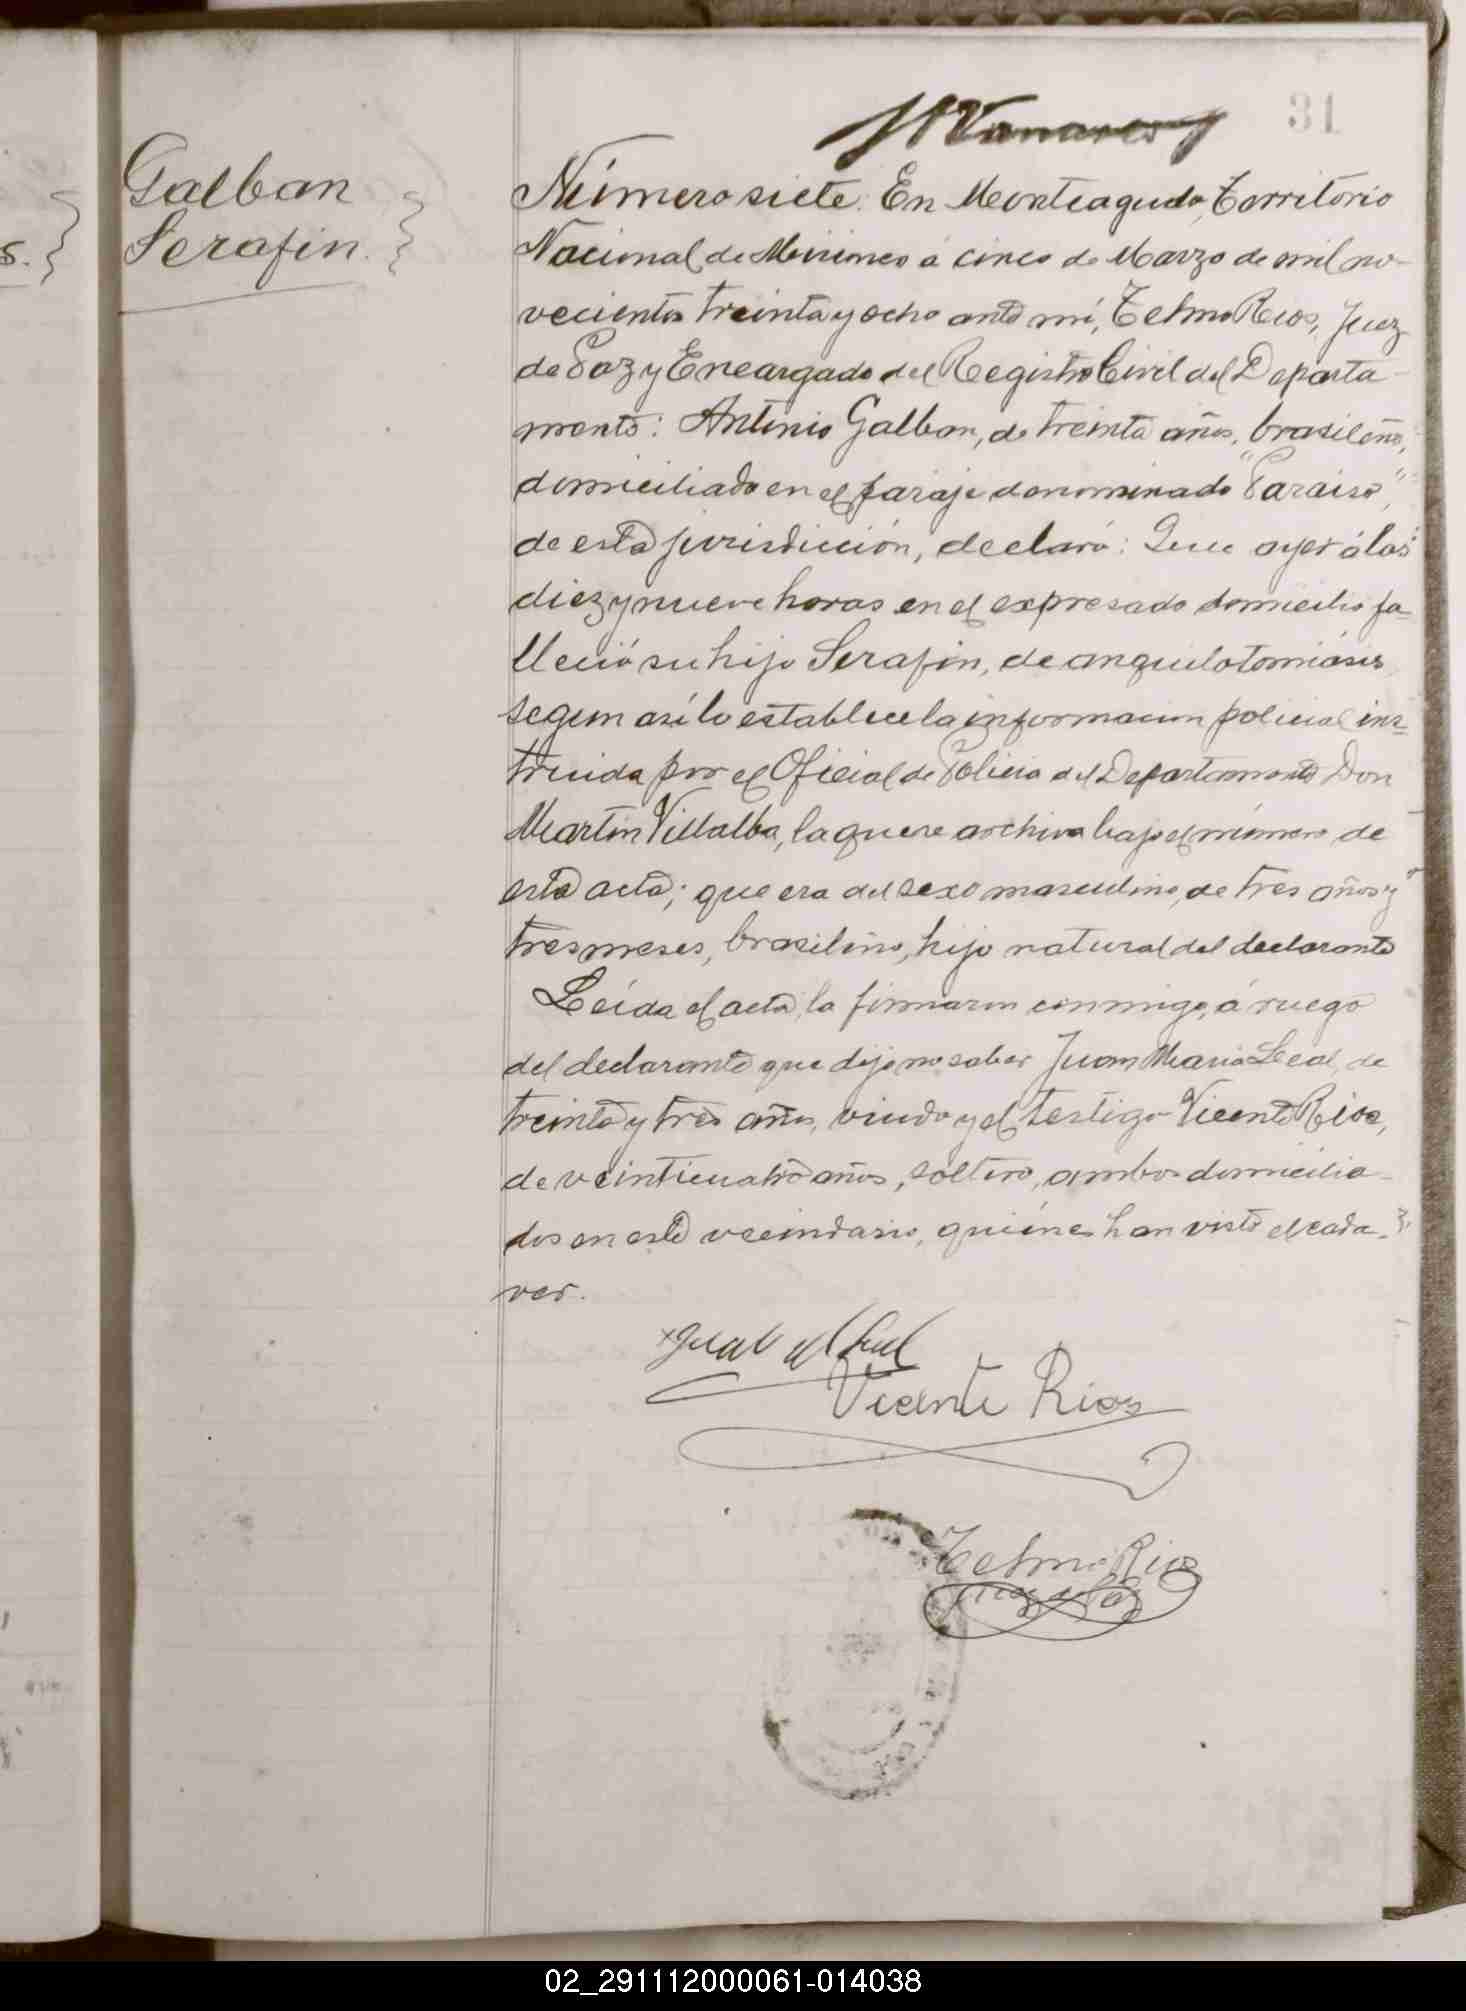 31
Galban
Serafin.
Número siete. En Monteagudo, Territorio
Nacional de Misiones á cinco de Marzo de mil no-
vecientos treinta y ocho ante mí, Telmo Rios, Juez
de Paz y Encargado del Registro Civil del Departa-
mento: Antonio Galban, de treinta años, brasileño,
domiciliado en el paraje denominado "Paraiso",
de esta jurisdicción, declaró: Que ayer á las
diez y nueve horas en el expresado domicilio fa-
lleció su hijo Serafin, de anquilotomiásis
segun asílo establece la informacion policial ins-
truida por el Oficial de Policia del Departamento Don
Martin Villalba, la que se archiva bajo el número de
esta acta; que era del sexo masculino, de tres años y
tres meses, brasileño, hijo natural del declarante
Leída el acta, la firmaron conmigo, á ruego
del declarante que dijo no saber Juan Maria Leal, de
treinta y tres años, viudo y el testigo Vicente Rios,
de veinticuatro años, soltero, ambos domicilia-
dos en este vecindario, quiénes han visto el cada-
ver.
Juan M Leal
Vicente Rios
Telmo Rios
Juez de Paz
02_291112000061-014038